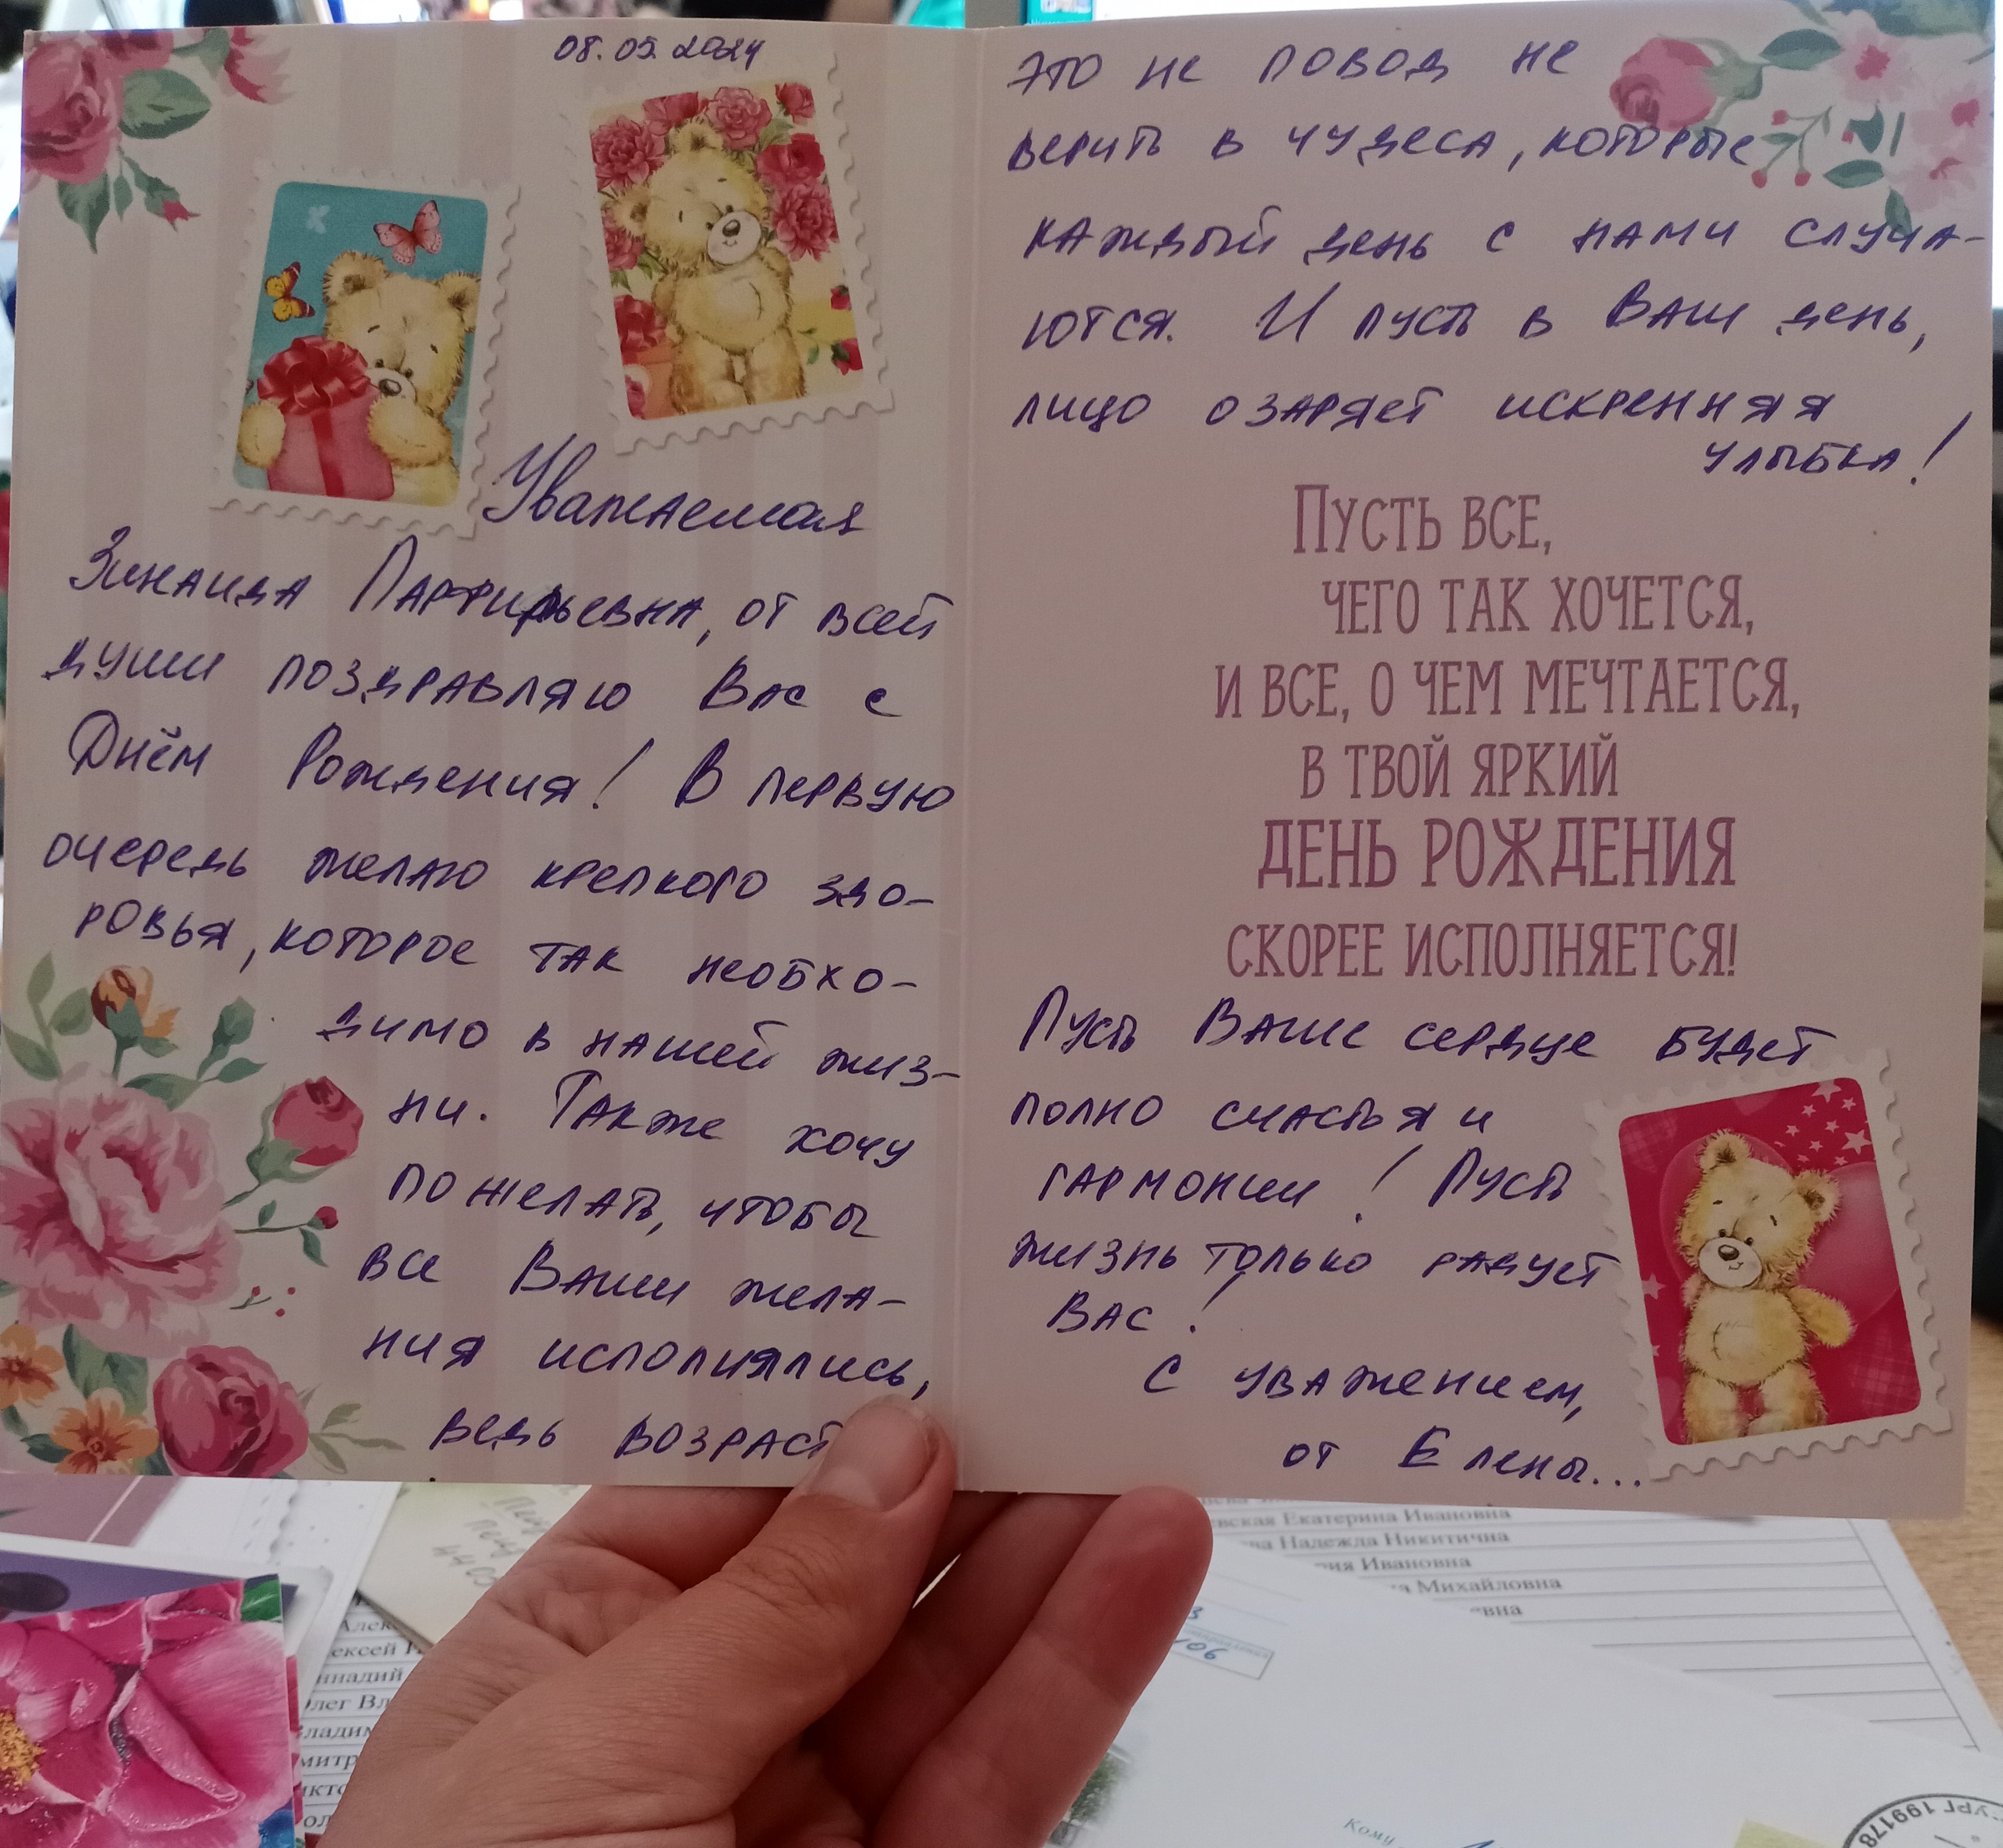 08.05.2024
Уважаемая
Зинаида Парфирьевна, от всей
души поздравляю Вас с
Днём Рождения! В первую
очередь желаю крепкого здо-
ровья, которое так необхо-
димо в нашей жиз-
ни. Также хочу
пожелать, чтобы
все Ваши жела-
ния исполнялись,
ведь возраст
это не повод не
верить в чудеса, которые
каждый день с нами случа-
ются. И пусть в Ваш день,
лицо озаряет искренняя
улыбка!
Пусть все,
чего так хочется,
и все, о чем мечтается,
в твой яркий
день рождения
скорее исполняется!
Пусть Ваше сердце будет
полно счастья и
гармонии! Пусть
жизнь только радует
Вас!
С уважением,
от Елены...
Екатерина Ивановна
Надежда Никитична
Ивановна
Михайловна
Кому
199178